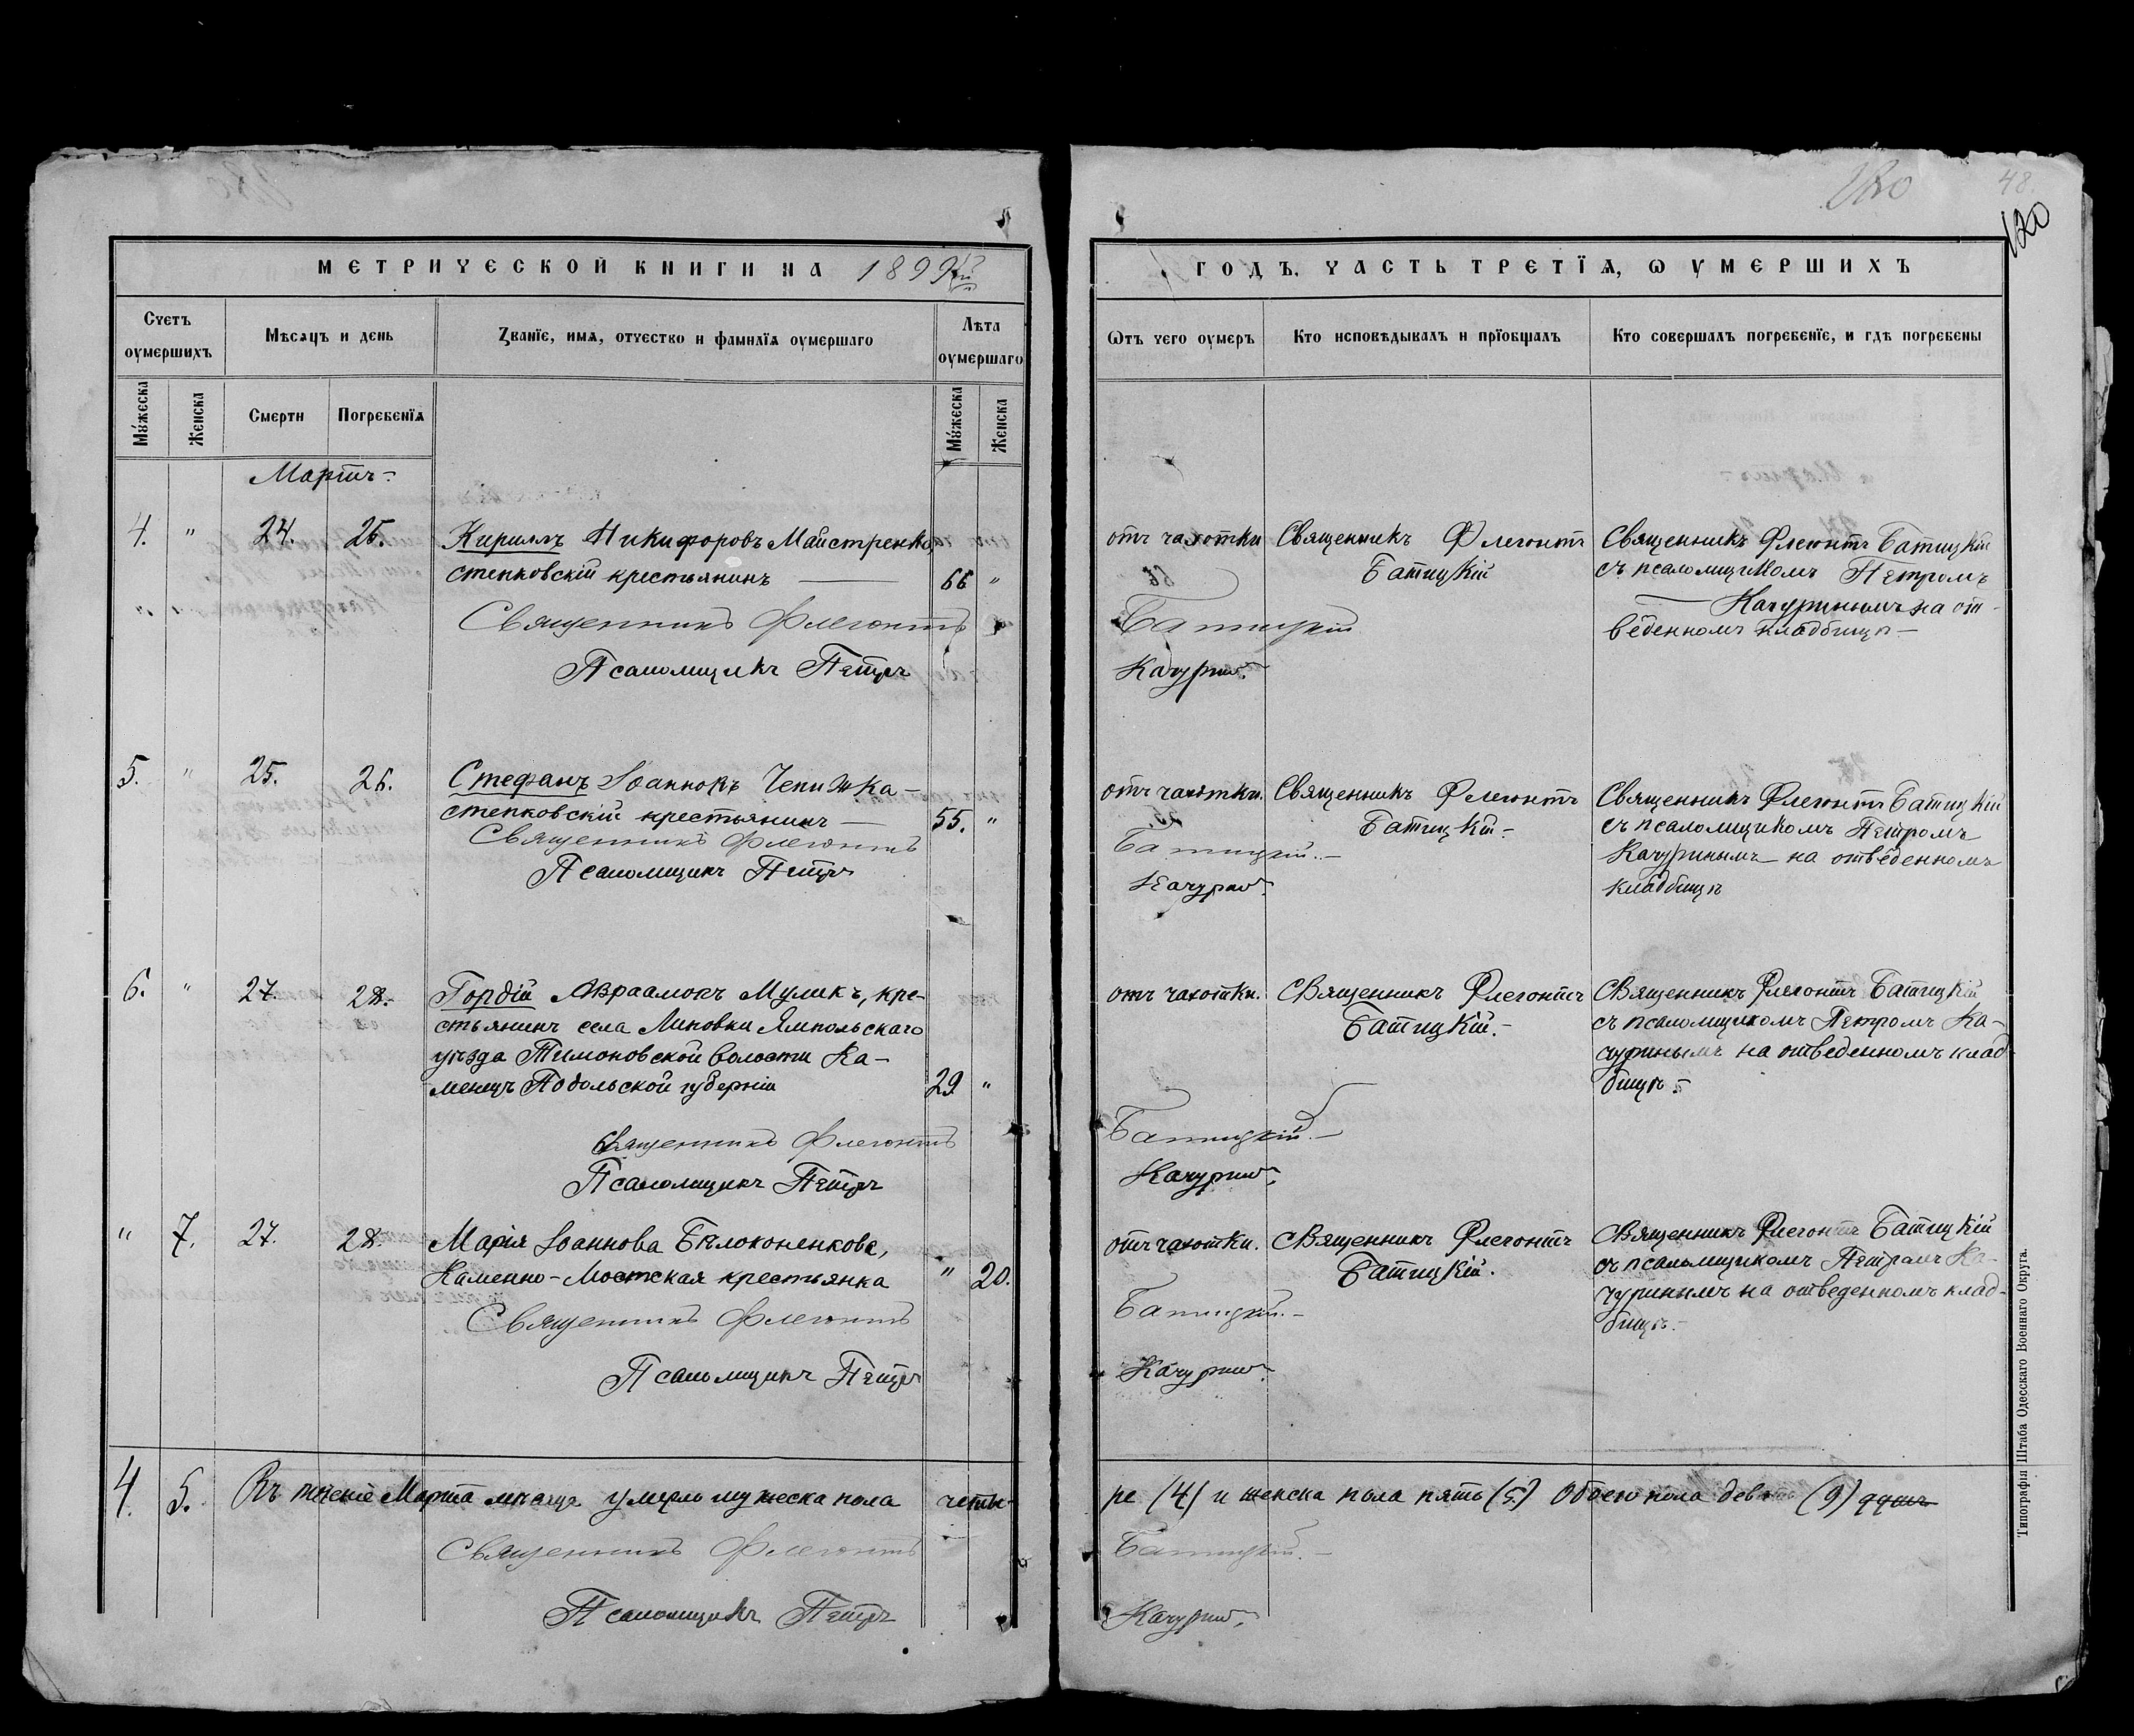 48.
120
МЕТРИЧЕСКОЙ КНИГИ НА 1899й
ГОДЪ, ЧАСТЬ ТРЕТЇѦ, Ѡ УМЕРШИХЪ
Счетъ оумершихъ
Мѣсѧцъ и день
Званїе, имѧ, отчество и фамилїѧ оумершаго
Лѣта оумершаго
Ѿтъ чего оумеръ
Кто исповѣдывалъ и прїобщалъ
Кто совершалъ погребенїе, и гдѣ погребены
Мужеска
Женска
Смерти
Погребенїѧ
Мужеска
Женска
Мартъ
4. " 24. 25. Кириллъ Никифоровъ Майстренко,
степковскій крестьянинъ 66 "
отъ чахотки
Священникъ Флегонтъ
Батицкій
Священникъ Флегонтъ Батицкій
съ псаломщикомъ Петромъ
Качуринымъ на от-
веденномъ кладбищѣ
Священникъ Флегонтъ Батицкій
Псаломщикъ Петръ Качуринъ.
5. " 25. 26. Стефанъ Іоанновъ Чепижка
степковскій крестьянинъ 55. "
отъ чахотки.
Священникъ Флегонтъ
Батицкій
Священникъ Флегонтъ Батицкій
съ псаломщикомъ Петромъ
Качуринымъ на отведенномъ
кладбищѣ
Священникъ Флегонтъ Батицкій.
Псаломщикъ Петръ Качуринъ.
6. " 27. 28. Гордій Авраамовъ Муликъ, кре-
стьянинъ села Липовки Ямпольскаго
уѣзда Тимоновской волости Ка-
менецъ Подольской губерніи 29 "
отъ чахотки.
Священникъ Флегонтъ
Батицкій.
Священникъ Флегонтъ Батицкій
съ псаломщикомъ Петромъ Ка-
чуринымъ на отведенномъ клад-
бищѣ
Священникъ Флегонтъ Батицкій.
Псаломщикъ Петръ Качуринъ.
" 7. 27. 28. Марія Іоаннова Бѣлоконенкова,
Каменно-Мостская крестьянка " 20.
отъ чахотки.
Священникъ Флегонтъ
Батицкій.
Священникъ Флегонтъ Батицкій
съ псаломщикомъ Петромъ Ка-
чуринымъ на отведенномъ клад-
бищѣ
Священникъ Флегонтъ Батицкій.
Псаломщикъ Петръ Качуринъ.
4. 5. Въ теченіе Марта мѣсяца умерло мужеска пола четы-
ре (4) и женска пола пять (5) Обоего пола девять (9) душъ
Священникъ Флегонтъ Батицкій.
Псаломщикъ Петръ Качуринъ.
Типографія Штаба Одесскаго Военнаго Округа.